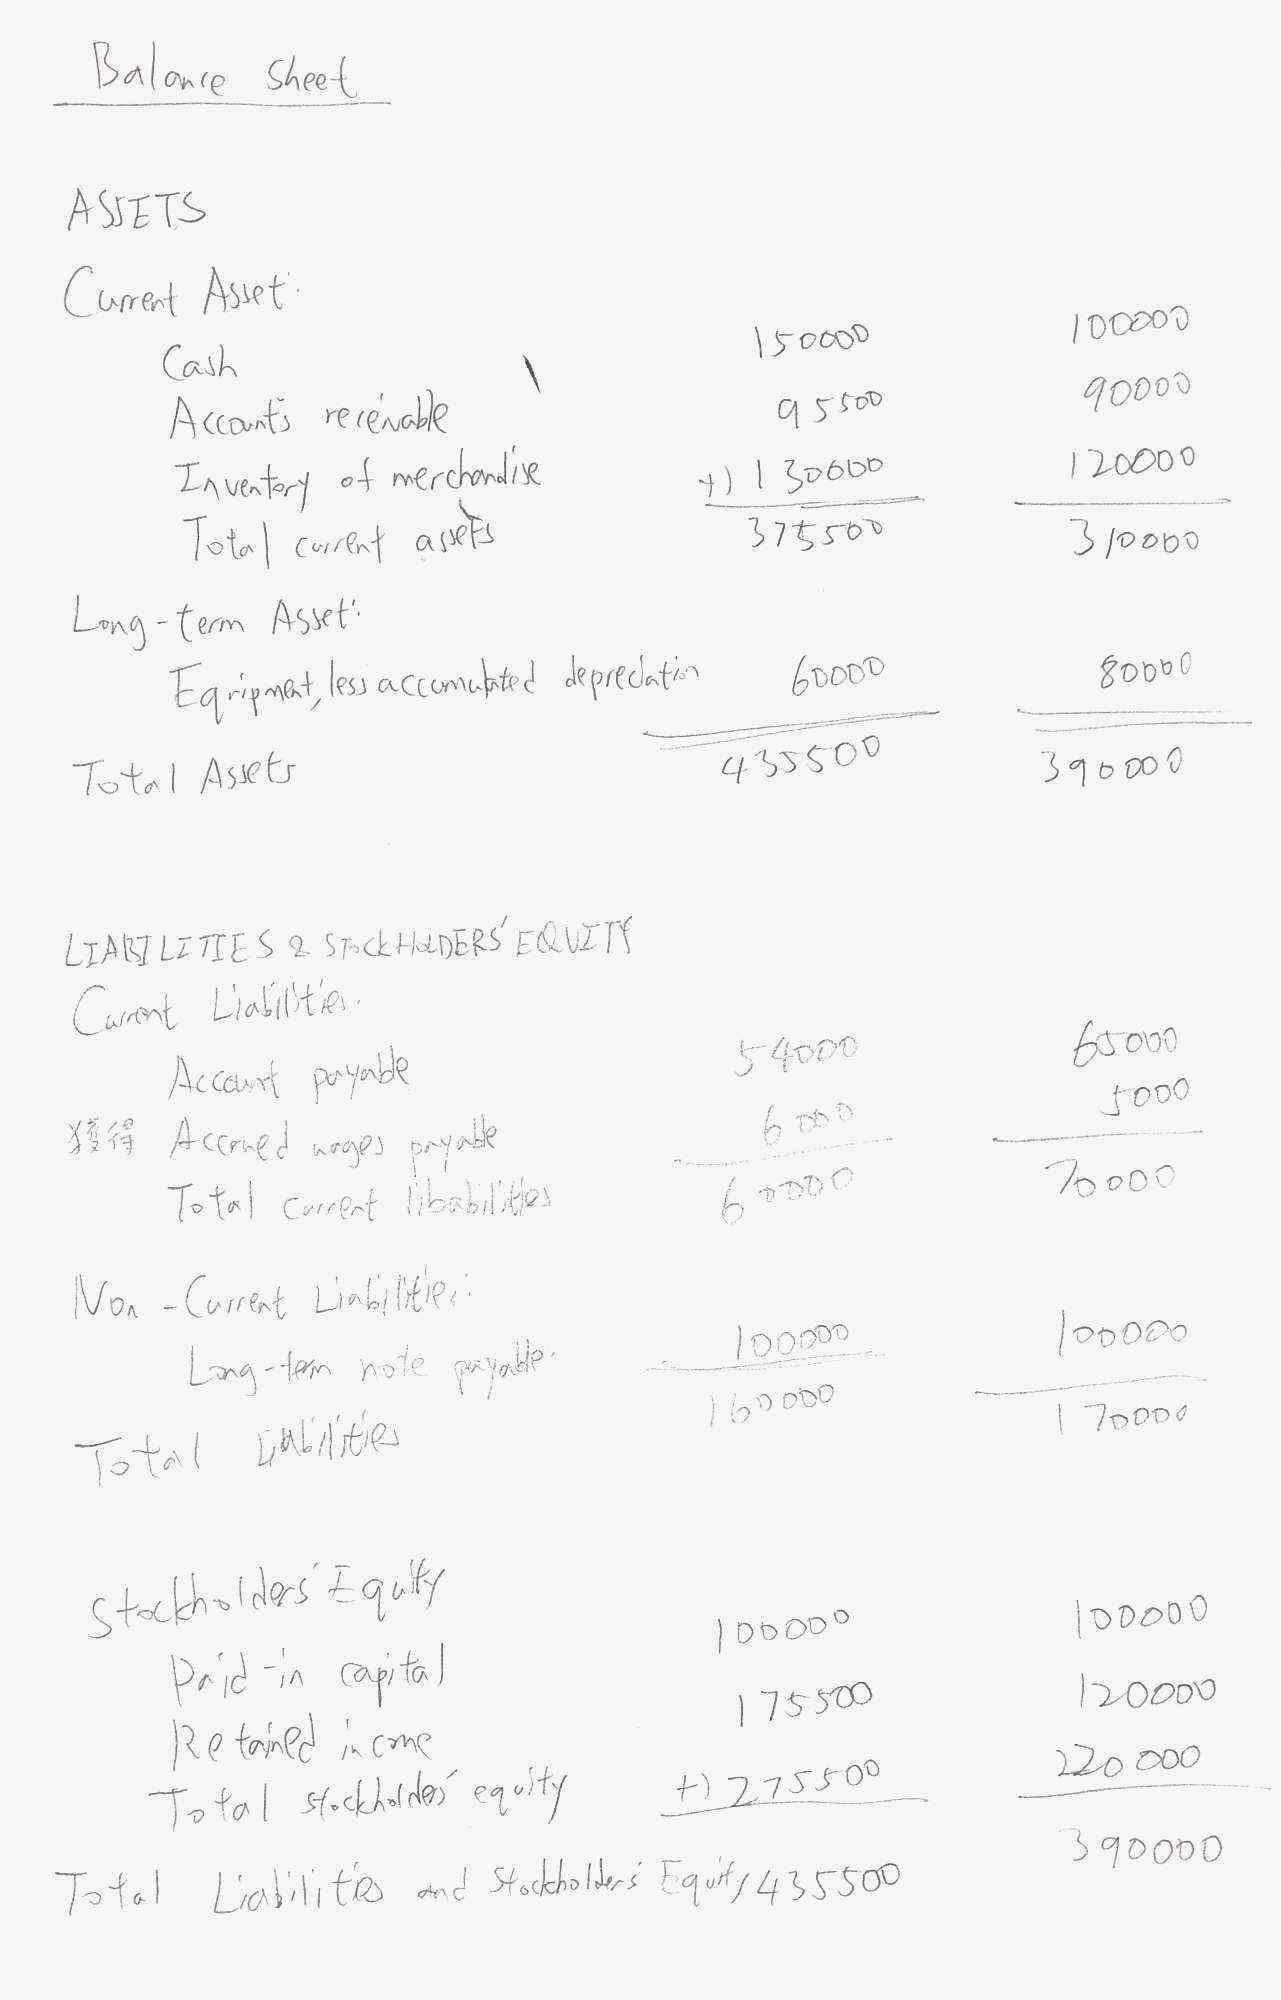 Balance Sheet
ASSETS
Current Asset:
Cash 150000 100000
Accounts receivable 95500 90000
Inventory of merchandise +) 130000 120000
Total current assets 375500 310000
Long-term Asset:
Equipment, less accumulated depreciation 60000 80000
Total Assets 435500 390000
LIABILITIES & STOCKHOLDERS' EQUITY
Current Liabilities:
Account payable 54000 65000
獲得 Accrued wages payable 6000 5000
Total current libabilities 60000 70000
Non-Current Liabilities:
Long-term note payable. 100000 100000
Total Liabilities 160000 170000
Stockholders' Equity
Paid-in capital 100000 100000
Retained income 175500 120000
Total stockholders' equity +) 275500 220000
Total Liabilities and Stockholders' Equity 435500 390000